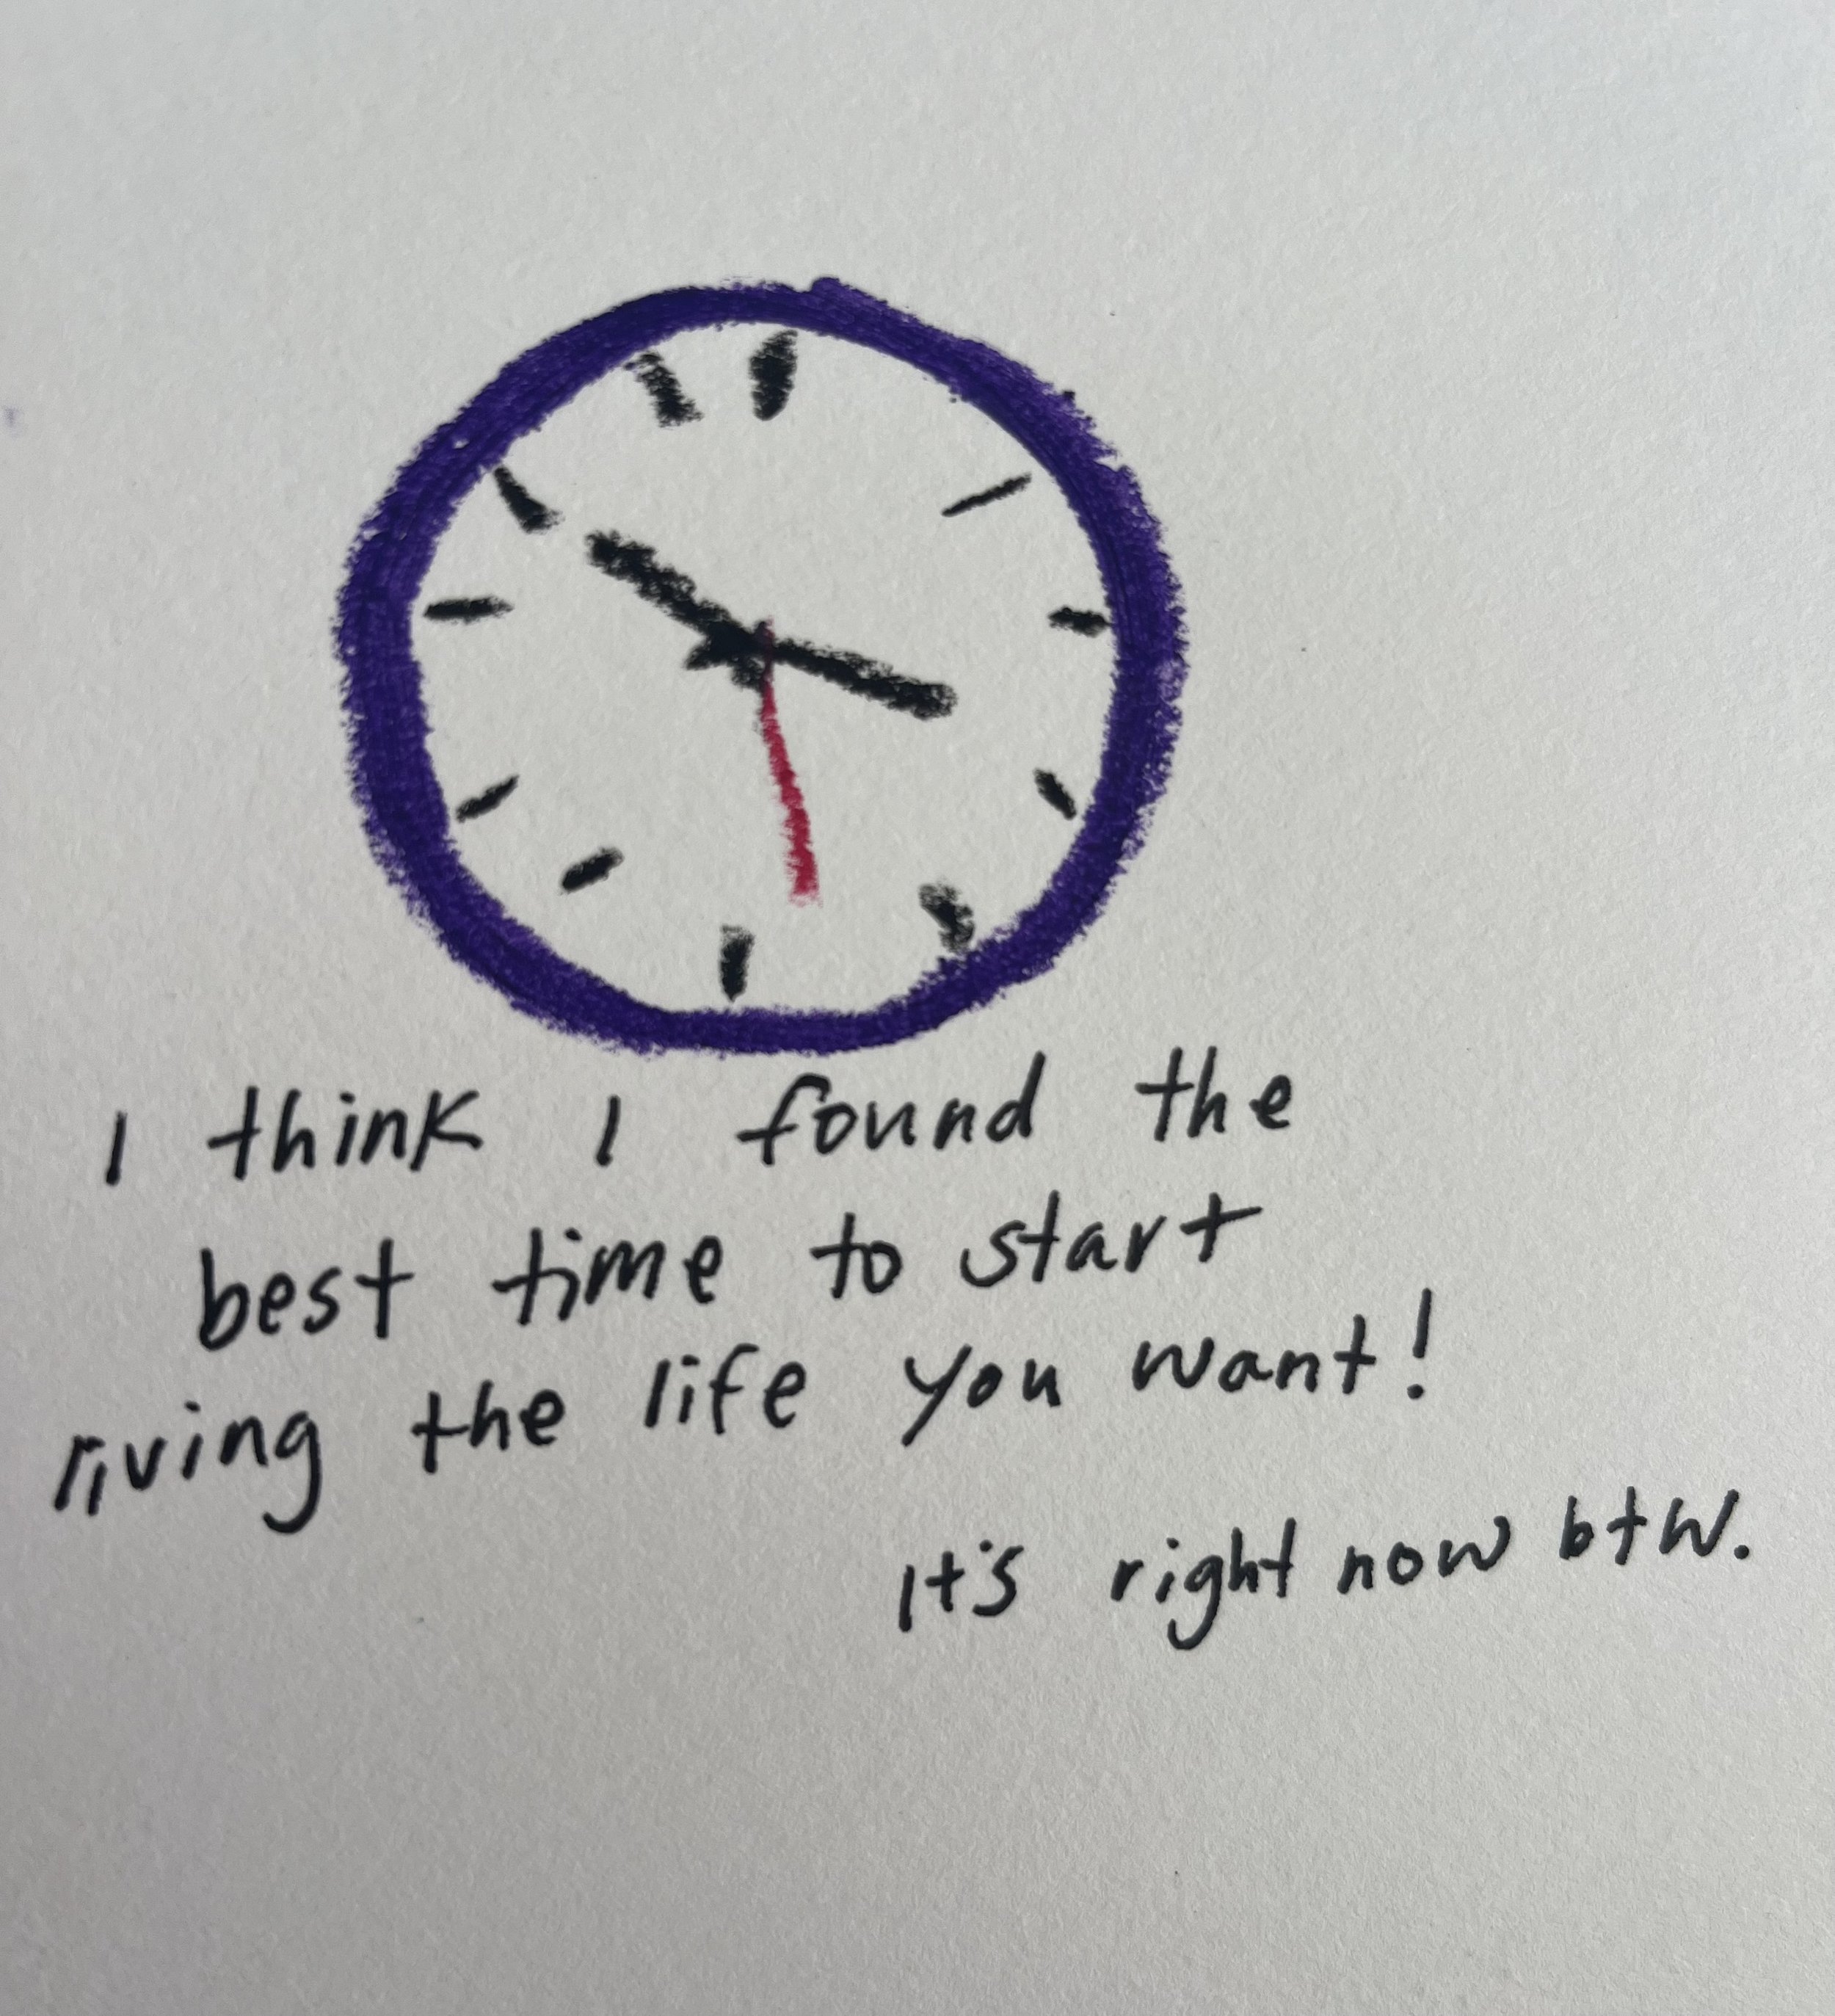 I think I found the
best time to start
living the life you want!
It's right now btw.